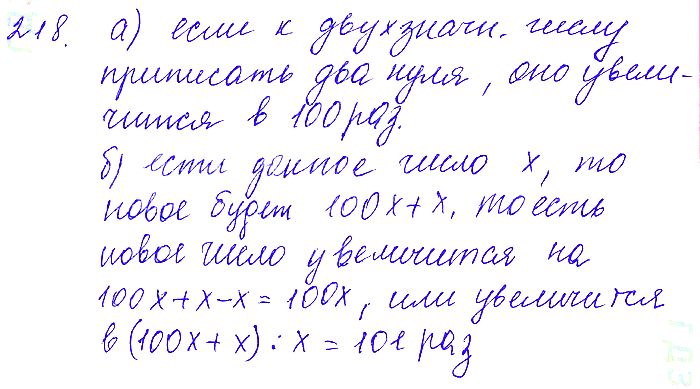 218. а) если к двухзначн. числу
приписать два нуля, оно увели-
чится в 100 раз.
б) если данное число x, то
новое будет 100x+x, то есть
новое число увеличится на
100x+x-x=100x, или увеличится
в (100x+x):x=101 раз